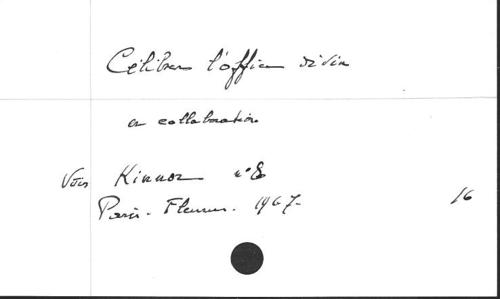 Célébrer l'office divin
en collaboration
Voir Kinnor n°8
Paris - Fleurus - 1967-
16